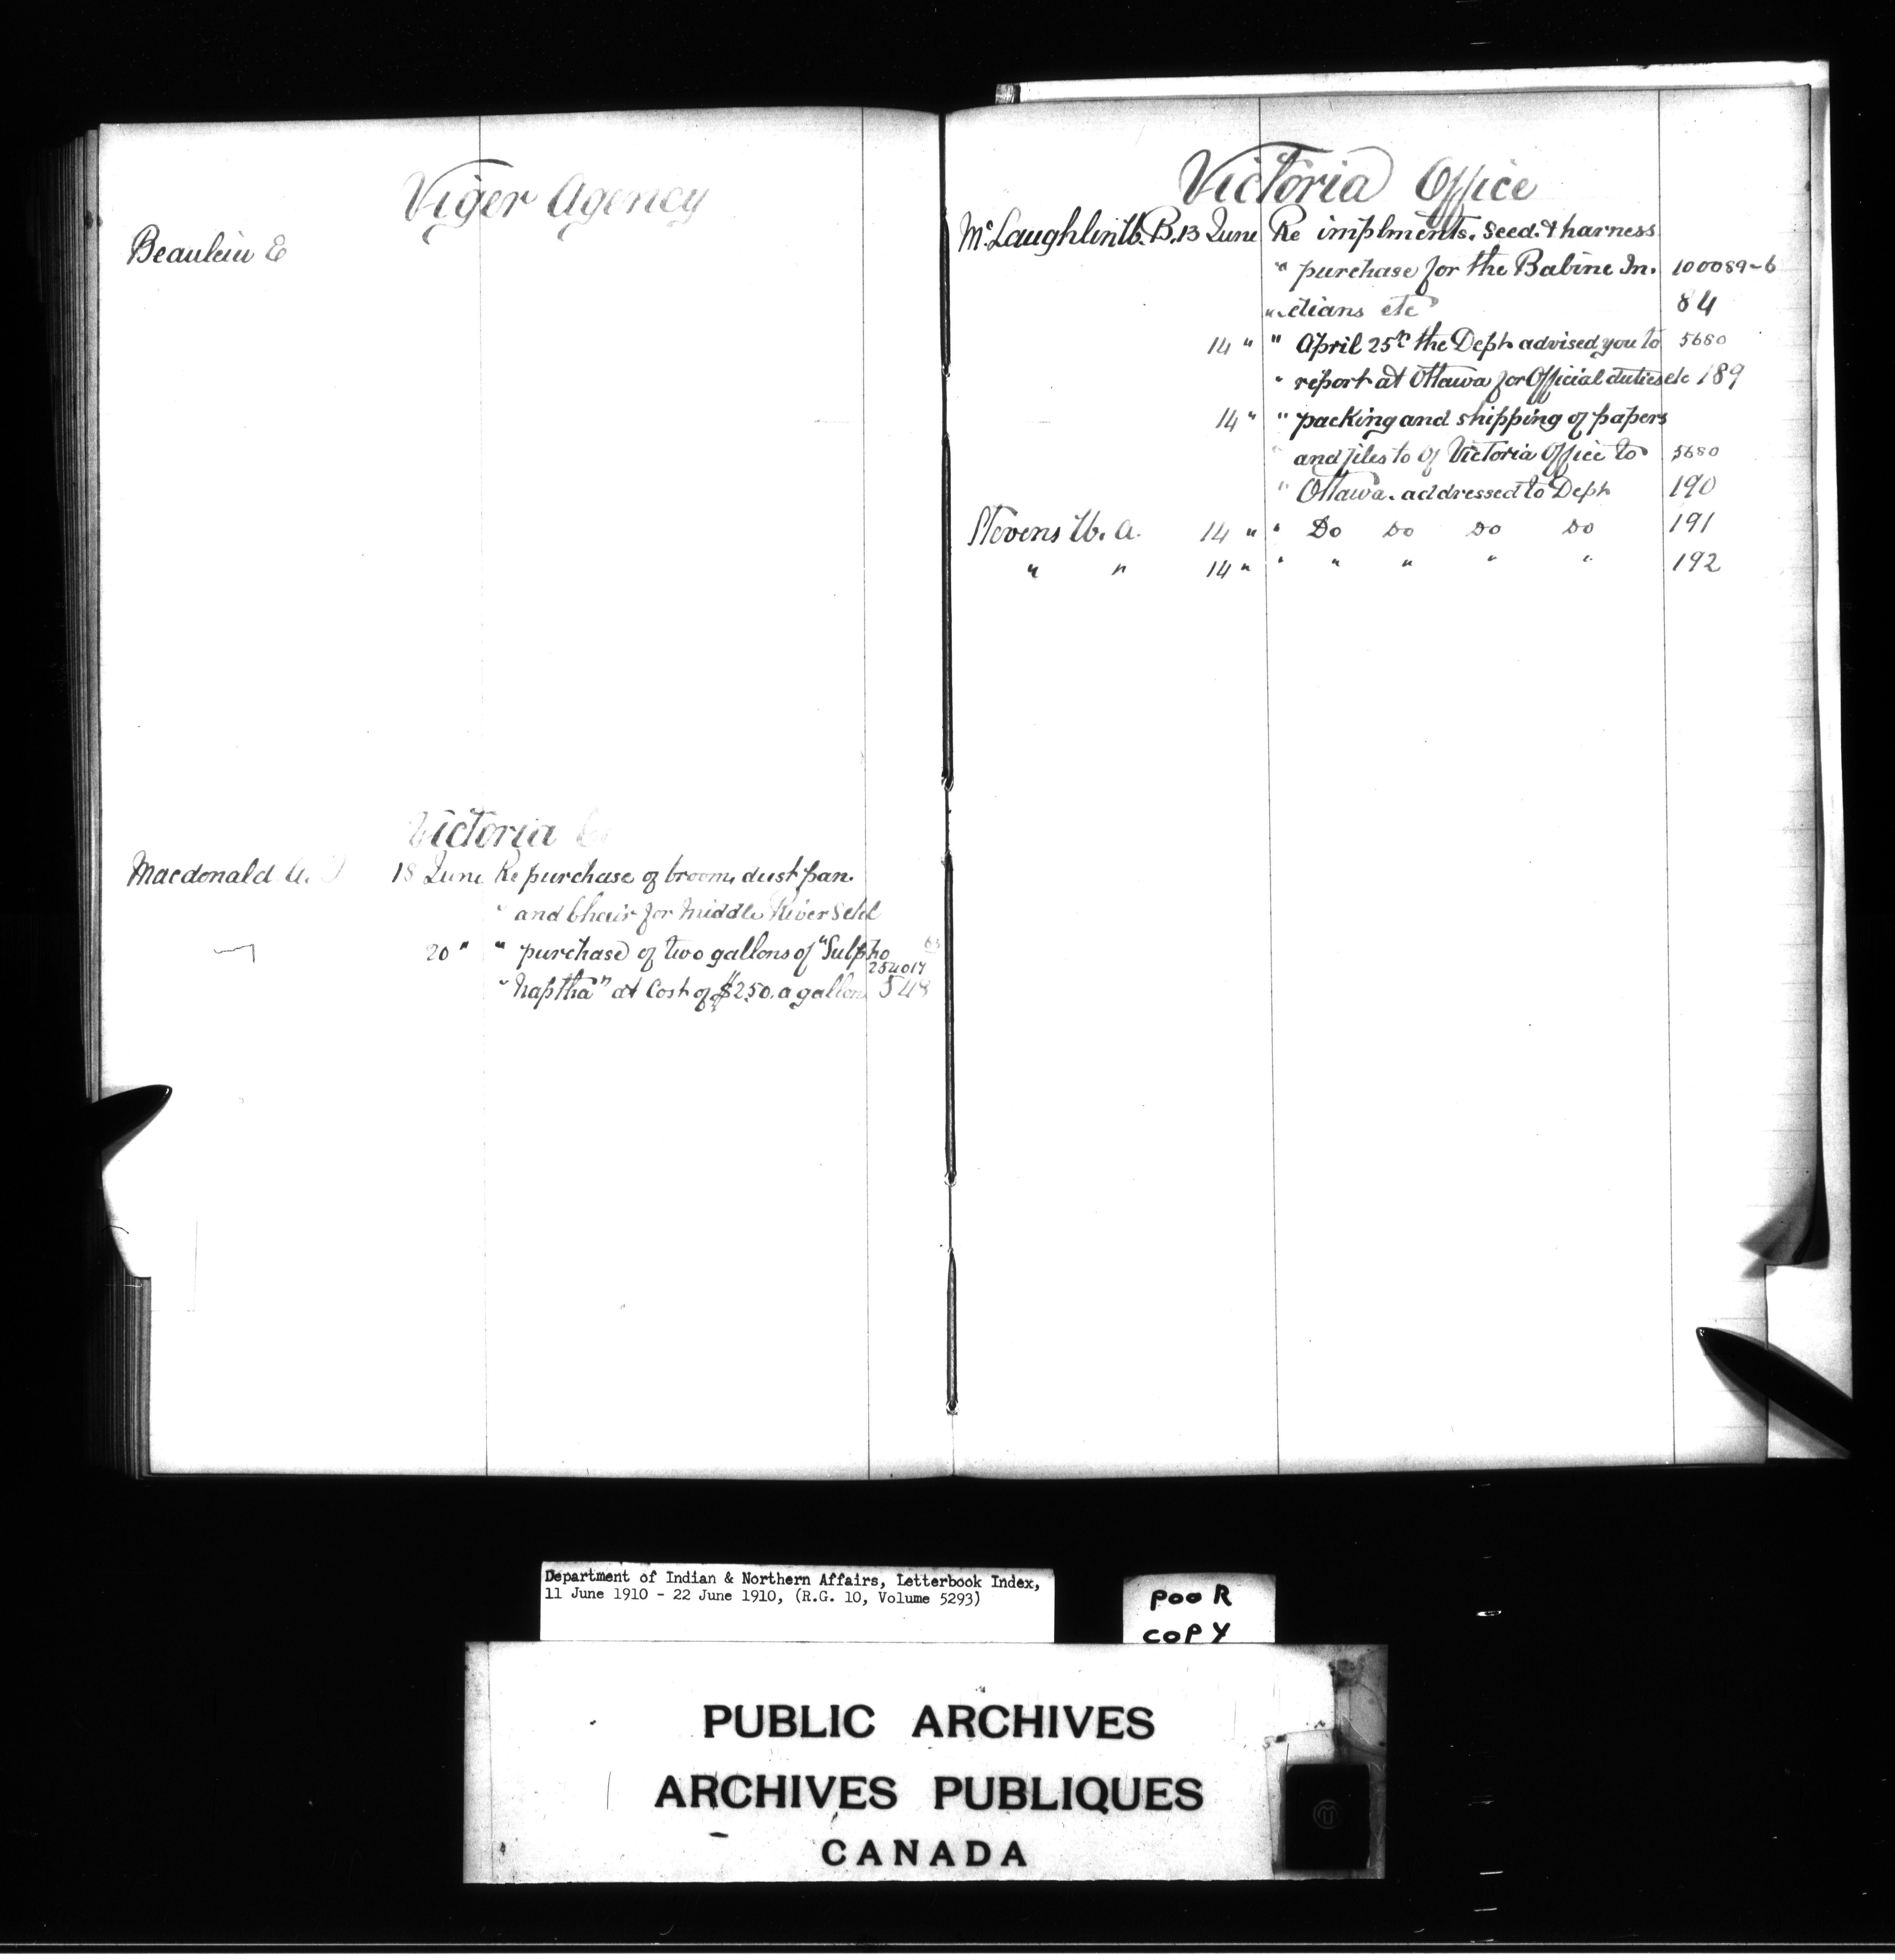 Viger Agency
Beaulieu E
Victoria
Macdonald A. 18 June Re purchase of broom, dust pan.
" and Chair for Middle River Schl
20 " " purchase of two gallons of "Sulpho
254017
" Naptha" at Cost of $2.50. a gallon 548
Victoria Office
McLaughlin W. B. 13 June Re implments. Seed. & harness
" purchase for the Babine In. 100089-6
" dians etc 84
14 " " April 25th the Dept advised you to 5680
" report at Ottawa for Official duties etc 189
14 " " packing and shipping of papers
" and files to of Victoria Office to 5680
" Ottawa. addressed to Dept 190
Stevens W. A. 14 " " Do Do Do Do 191
" " 14 " " " " " " 192
Department of Indian & Northern Affairs, Letterbook Index,
11 June 1910 - 22 June 1910, (R.G. 10, Volume 5293)
POOR
COPY
PUBLIC ARCHIVES
ARCHIVES PUBLIQUES
CANADA